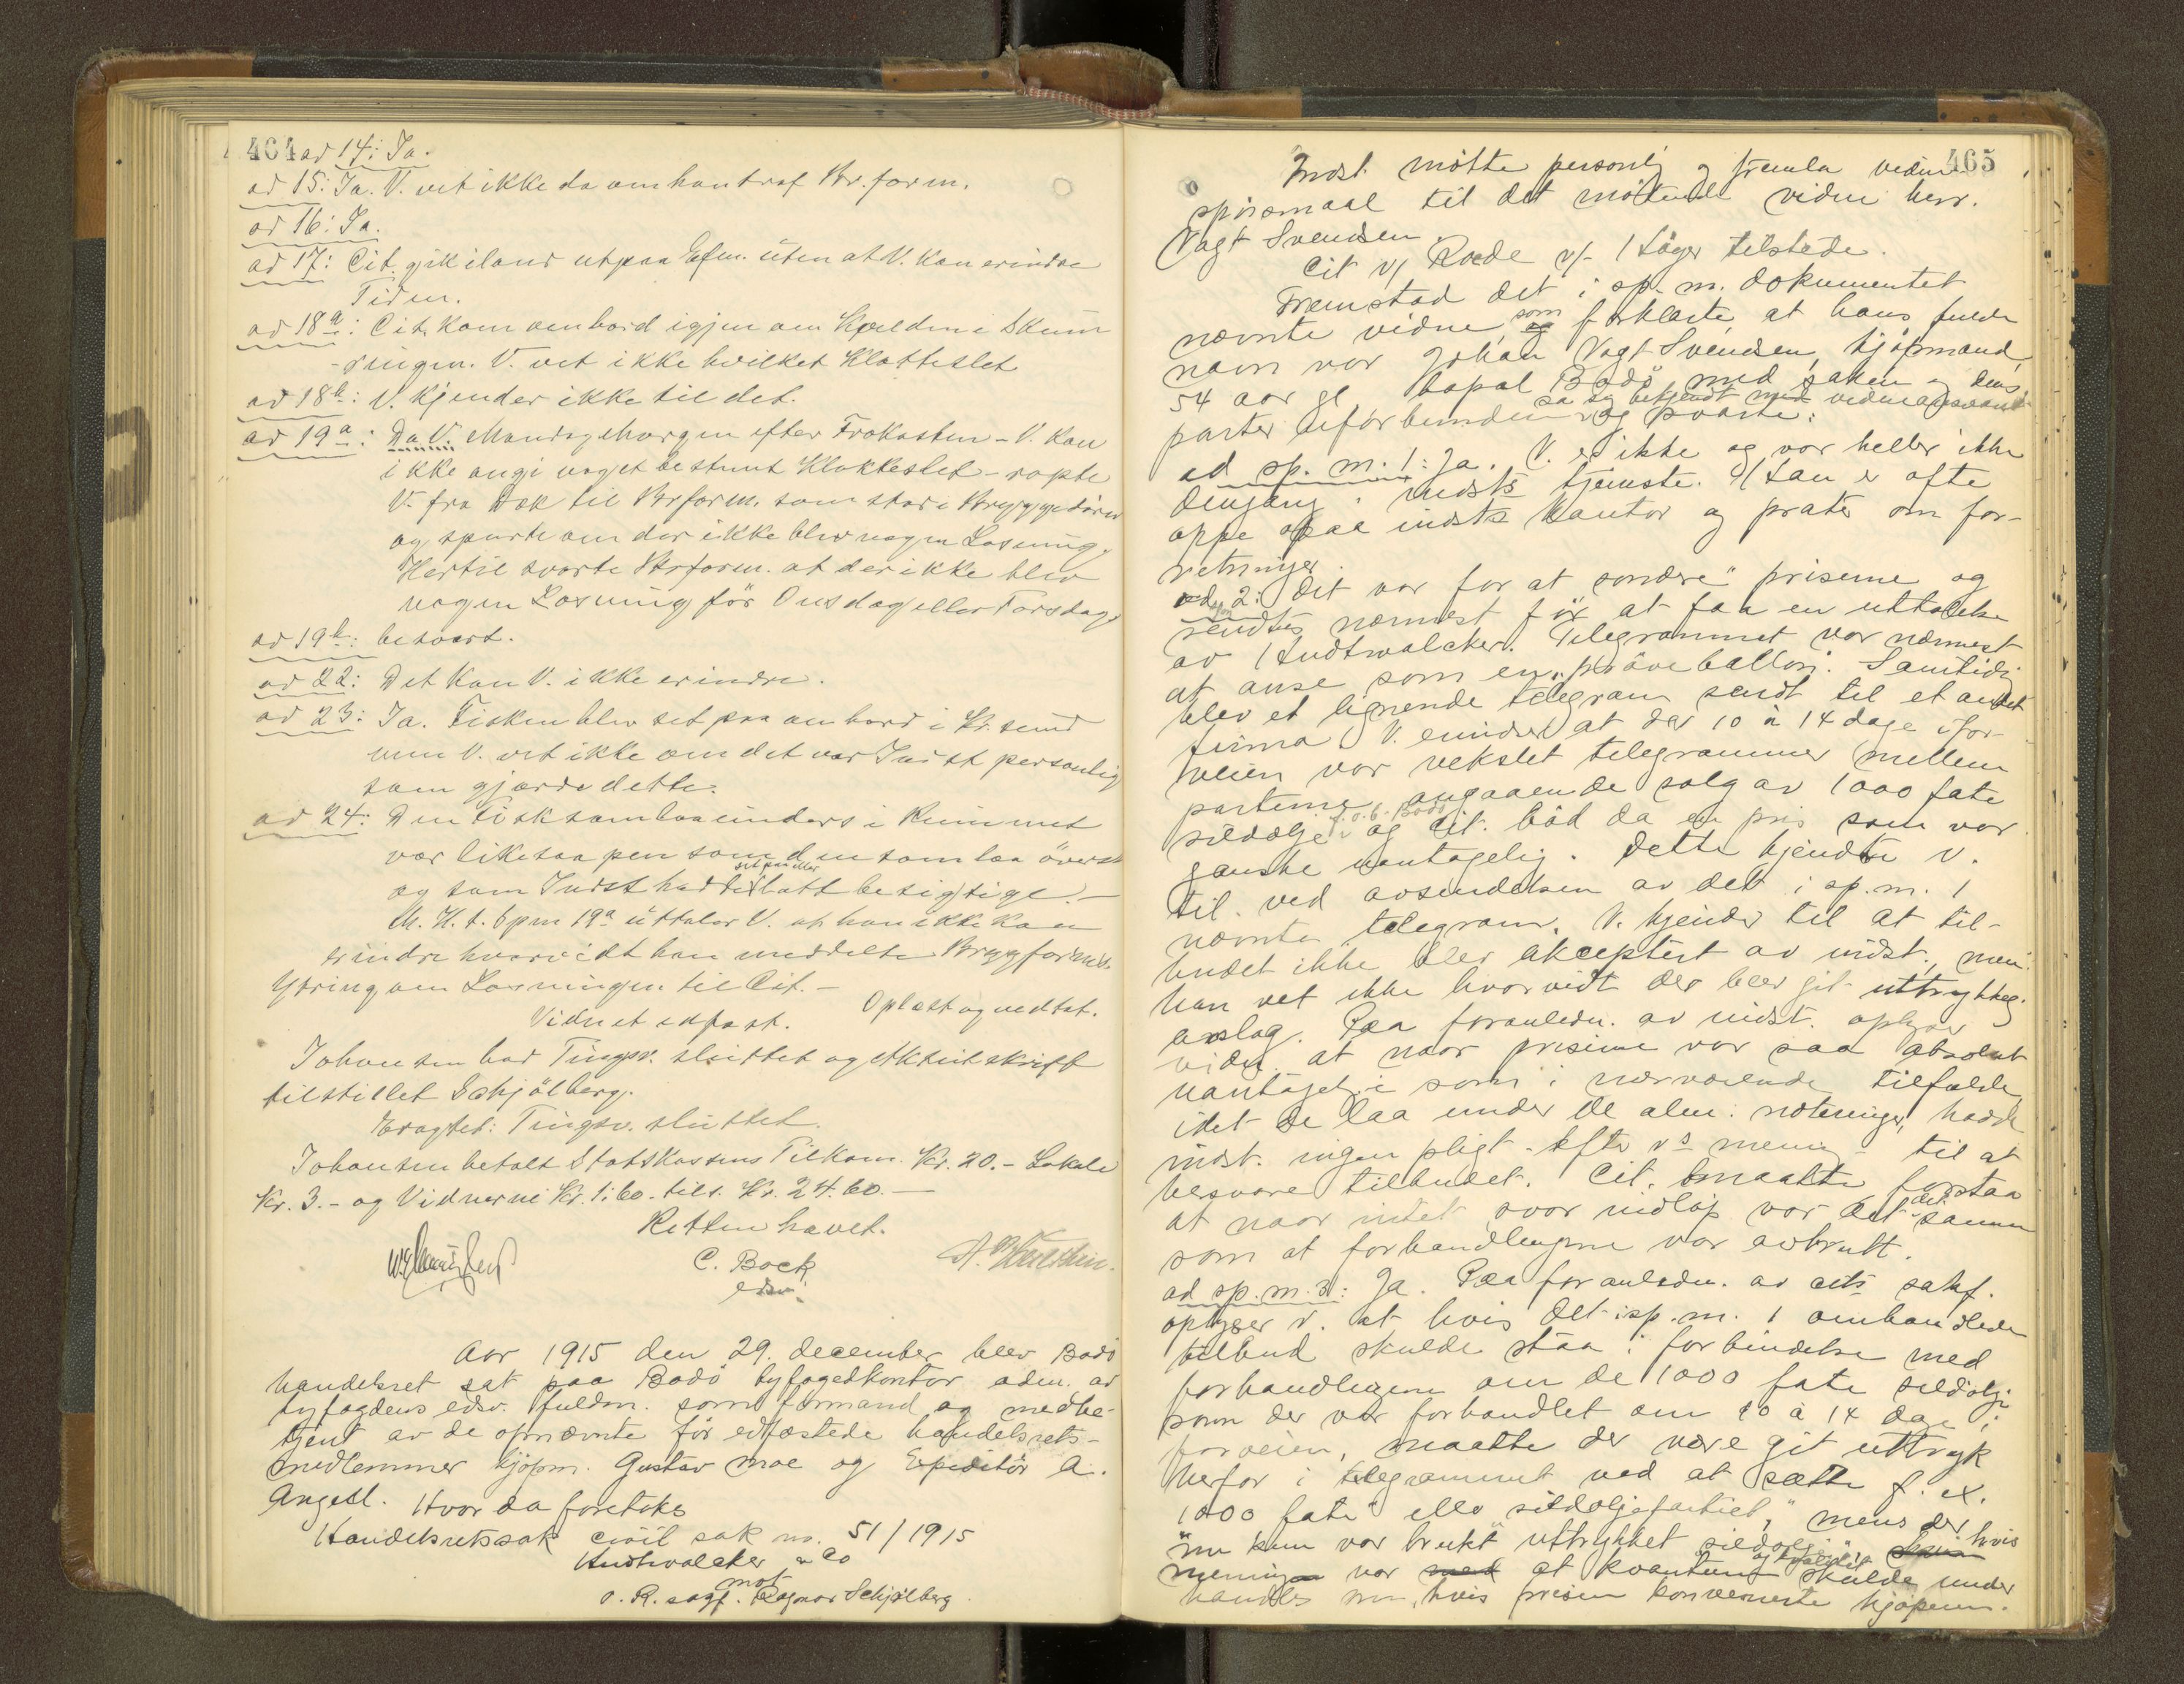 464 ad 14: Ja.
ad 15: Ja. V. vet ikke da om han traf Br.form.
ad 16: Ja.
ad 17: Cit. gik iland utpaa Efm. uten at V. kan erindre
Tiden.
ad 18a: Cit. kom ombord igjen om Kvelden i Skum-
ringen. V. vet ikke hvilket Klokkeslet
ad 18b: V. kjender ikke til det.
ad 19a: Da V. Mandag Morgen efter Frokosten - V. kan
ikke angi noget bestemt Klokkeslet - ropte
V. fra Dæk til Brform. som stod i Bryggedøren
og spurte om der ikke blev nogen Losning.
Hertil svarte Brform. at der ikke blev
nogen Losning før Onsdag eller Torsdag.
ad 19b: besvart.
ad 22: Det kan V. ikke erindre.
ad 23: Ja. Fisken blev set paa ombord i Kr.sund
men V. vet ikke om det var Indst personlig
som gjorde dette.
ad 24: Den Fisk som laa underst i Rummet
var likesaa pen som den som laa øverst
og som Indst hadde set paa eller latt besigtige. -
M. H. t. Spm 19a uttaler V. at han ikke kan
erindre hvorvidt han meddelte Bryggform's
Ytring om Losningen til Cit. -
Oplæst og vedtat.
Vidnet edfæst.
Johansen bad Tingsv. sluttet og Aktutskrift
tilstillet Schjölberg.
Eragtet: Tingsv. sluttet.
Johansen betalt Statskassens Tilkom. Kr. 20.- Lokale
Kr. 3.- og Vidnerne Kr. 1.60. tils. Kr. 24.60. -
Retten hævet.
C. Bock
edsv.
Aar 1915 den 29. december blev Bodø
handelsret sat paa Bodø byfogedkontor adm. av
byfogdens edsv. fuldm. som formand og medbe-
tjent av de opnævnte før edfæstede handelsrets-
medlemmer kjøpm. Gustav Moe og Expeditør A.
Angell. Hvor da foretoks
Handelsretssak civil sak no. 51/1915
Hudtwalcker & Co
mot
O. R. sagf. Ragnar Schjølberg
465
Indst. møtte personlig og fremla vidne
spørsmaal til det møtende vidne herr.
Vogt Svendsen.
Cit v/ Rode v/ Høyer tilstede.
Fremstod det i sp. m. dokumentet
nævnte vidne, som forklarte, at hans fulde
navn var Johan Vogt Svendsen, kjøpmand,
54 aar gl bopæl Bodø, med saken og dens
parter uforbunden sa sig bekjendt med vidneansvaret og svarte:
ad sp. m. 1: Ja. V. er ikke og var heller ikke
dengang i indsts tjeneste. Han er ofte
oppe paa indsts kontor og prater om for-
retninger.
ad 2: Det var for at "sondere" priserne og
sendtes nærmest for at faa en uttalelse
av Hudtwalcker. Telegrammet var nærmest
at anse som en "prøveballon". Samtidig
blev et lignende telegram sendt til et andet
firma. V. erindrer at der 10 à 14 dage ifor-
veien var vekslet telegrammer mellem
parterne angaaende salg av 1000 fate
sildolje f.o.b. Bodø og cit. bød da en pris som var
ganske uantagelig. Dette kjendte V.
til ved avsendelsen av det i sp.m. 1
nævnte telegram. V. kjender til at til-
budet ikke blev akceptert av indst., men
han vet ikke hvorvidt der blev git uttrykkelig
avslag. Paa foranledn. av indst. oplyser
vidnet at naar priserne var saa absolut
uantagelige som i nærværende tilfælde,
idet de laa under de alm. noteringer, hadde
indst. ingen pligt - efter v's mening - til at
besvare tilbudet. Cit. maatte forstaa
at naar intet svar indløp var det det samme
som at forhandlingerne var avbrutt.
ad sp. m. 3: Ja. Paa foranledn. av cits sakf.
oplyser V. at hvis det i sp. m. 1 omhandlede
tilbud skulde staa i forbindelse med
forhandlingerne om de 1000 fate sildolje
som der var forhandlet om 10 à 14 dage i
forveien, maatte der være git uttryk
herfor i telegrammet ved at sætte f. ex.
"1000 fate" eller "sildoljepartiet", mens der
nu kun var brukt uttrykket "sildolje" hvis
meningen var at kvantum og kvalitet skulde under
handles om, hvis prisen konvenerte kjøperen.